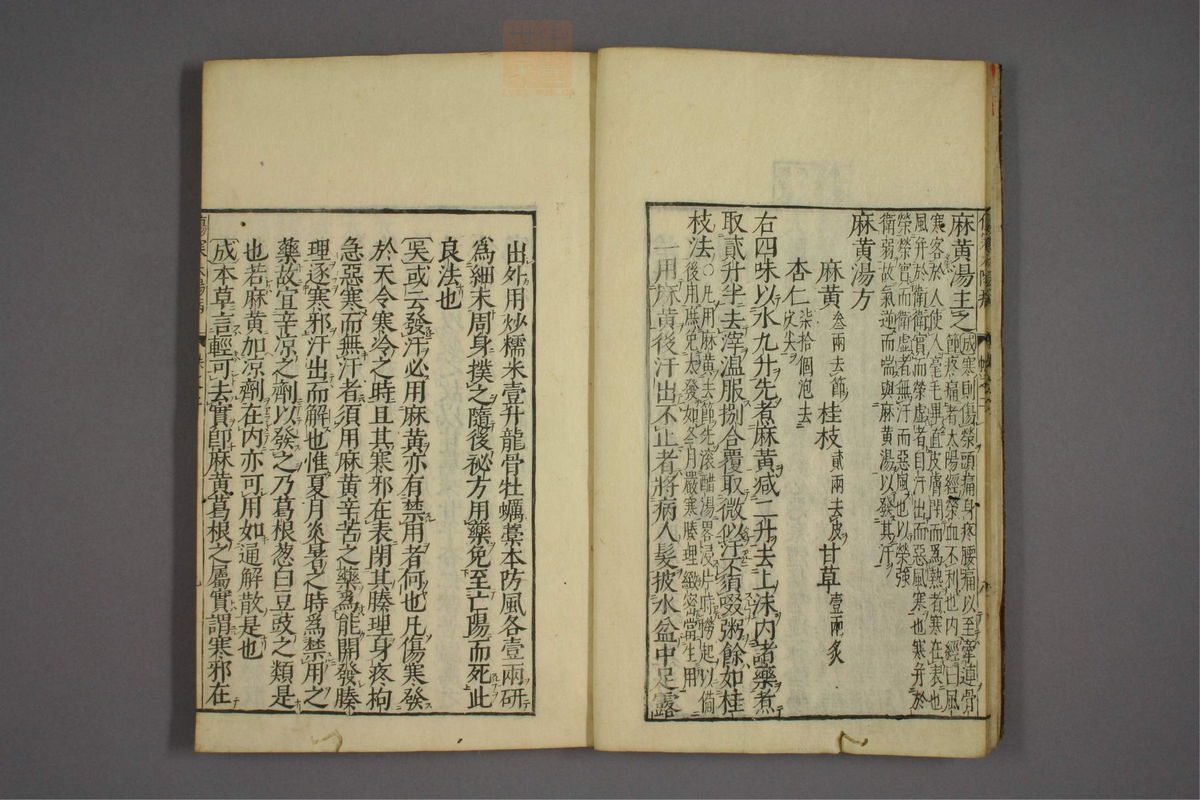 麻黄湯主之 成寒則傷榮頭痛身疼腰痛以至牽連骨
節疼痛者太陽經榮血不利也内經曰風
寒客於人使人毫毛畢直皮膚閉而爲熱者寒在表也
風并於衛衛實而榮虚者自汗出而惡風寒也寒并於
榮榮實而衛虚者無汗而惡風也以榮強
衛弱故氣逆而喘與麻黄湯以發其汗
麻黄湯方
麻黄 叁兩去節 桂枝 貳兩去皮 甘草 壹兩炙
杏仁 柒拾個泡去
皮尖
右四味以水九升先煮麻黄减二升去上沫内諸藥煮
取貳升半去滓温服捌合覆取微似汗不須啜粥餘如桂
枝法 ○凡用麻黄去節先滚醋湯畧浸片時撈起以備
後用庶免太發如冬月嚴寒腠理緻密當生用
一用麻黄後汗出不止者將病人髮披水盆中足露
出外用炒糯米壹升龍骨牡蠣藁本防風各壹兩研
爲細末周身撲之隨後祕方用藥免至亡陽而死此
良法也
吴或云發汗必用麻黄亦有禁用者何也凡傷寒發
於天令寒冷之時且其寒邪在表閉其腠理身疼拘
急惡寒而無汗者須用麻黄辛苦之藥爲能開發腠
理逐寒邪汗出而解也惟夏月炎暑之時爲禁用之
藥故宜辛凉之劑以發之乃葛根葱白豆豉之類是
也若麻黄加凉劑在内亦可用如通解散是也
成本草言輕可去實即麻黄葛根之屬實謂寒邪在